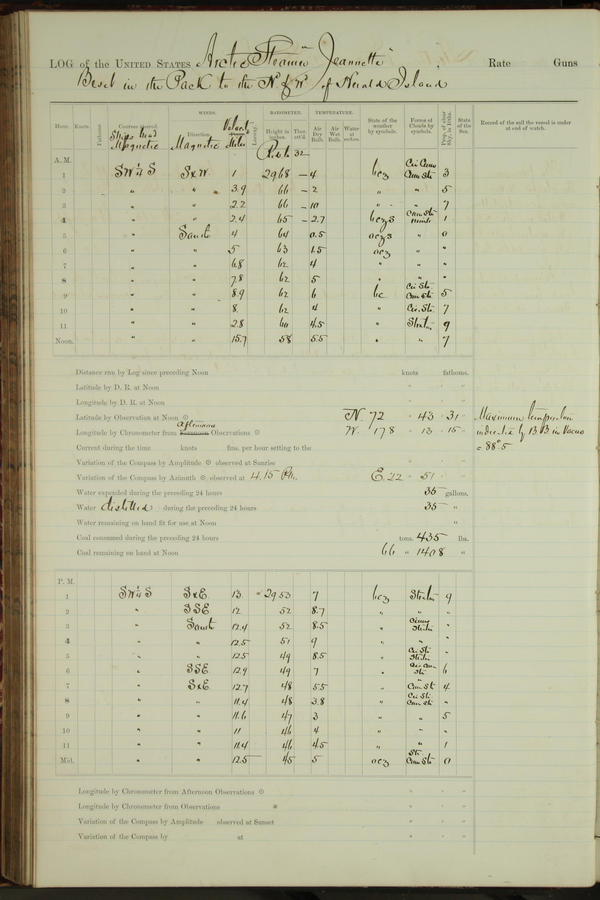 LOG of the UNITED STATES Arctic Steamer Jeannette Rate Guns
Beset in the Pack to the N & W of Herald Island
WINDS. BAROMETER. TEMPERATURE.
Hour. Knots. Courses steered. Direction. Velocity Miles Leeway. Height in inches. Ther. att'd. Air Dry Bulb. Air Wet Bulb. Water at surface. State of the weather by symbols. Forms of Clouds by symbols. Prop. of clear Sky, in 10ths. State of the Sea. Record of the sail the vessel is under at end of watch.
Ships head Magnetic Magnetic
A. M. 32
1 SW ¼ S S x W 1 29.68 - 4 bcz Cum Sti 3
2 " " 3.9 66 - 2 " " 5
3 " " 2.2 66 - 10 " " 7
4 " " 2.4 65 - 2.7 bczs Cum Sti 1
5 " South 4 64 0.5 oczs " 0
6 " " 5 63 1.5 ocz " "
7 " " 6.8 62 4 " " "
8 " " 7.8 62 5 " " "
9 " " 8.9 62 6 bc Cir Sti Cum Sti 5
10 " " 8. 62 4 " Cir. Sti 7
11 " " 2.8 60 4.5 " Stratus 9
Noon. " " 15.7 58 5.5 " " 7
Distance run by Log since preceding Noon knots fathoms.
Latitude by D. R. at Noon ° ' "
Longitude by D. R. at Noon ° ' "
Latitude by Observation at Noon ⊙ N 72 ° 43 ' 31 "
Longitude by Chronometer from Forenoon Afternoon Observations ⊙ W. 178 ° 13 ' 15 "
Maximum temperature
indicated by B B in Vacuo
= 88°.5
Current during the time knots fms. per hour setting to the
Variation of the Compass by Amplitude ⊙ observed at Sunrise ° ' "
Variation of the Compass by Azimuth ⊙ observed at 4.15 P.M. E. 22 ° 51 '
Water expended during the preceding 24 hours 35 gallons.
Water distilled during the preceding 24 hours 35 "
Water remaining on hand fit for use at Noon "
Coal consumed during the preceding 24 hours tons. 435 lbs.
Coal remaining on hand at Noon 66 " 1408 "
P. M.
1 SW ¼ S S x E 13. 29 53 7 bcz Stratus 9
2 " SSE 12 52 8.7 " " "
3 " South 12.4 52 8.5 " Cirrus Stratus "
4 " " 12.5 51 9 " " "
5 " " 12.5 49 8.5 " Cir Sti Stratus "
6 " SSE 12.9 49 7 " Cir Cum Sti 6
7 " S x E 12.7 48 5.5 " Cum St 4
8 " " 11.4 48 3.8 " Cir St. Cum Sti "
9 " " 11.6 47 3 " " 5
10 " " 11 46 4 " " "
11 " " 11.4 46 4.5 " " 1
Mid. " " 12.5 45 5 ocz Str Cum Sti 0
Longitude by Chronometer from Afternoon Observations ⊙ ° ' "
Longitude by Chronometer from Observations * ° ' "
Variation of the Compass by Amplitude observed at Sunset ° ' "
Variation of the Compass by at ° ' "